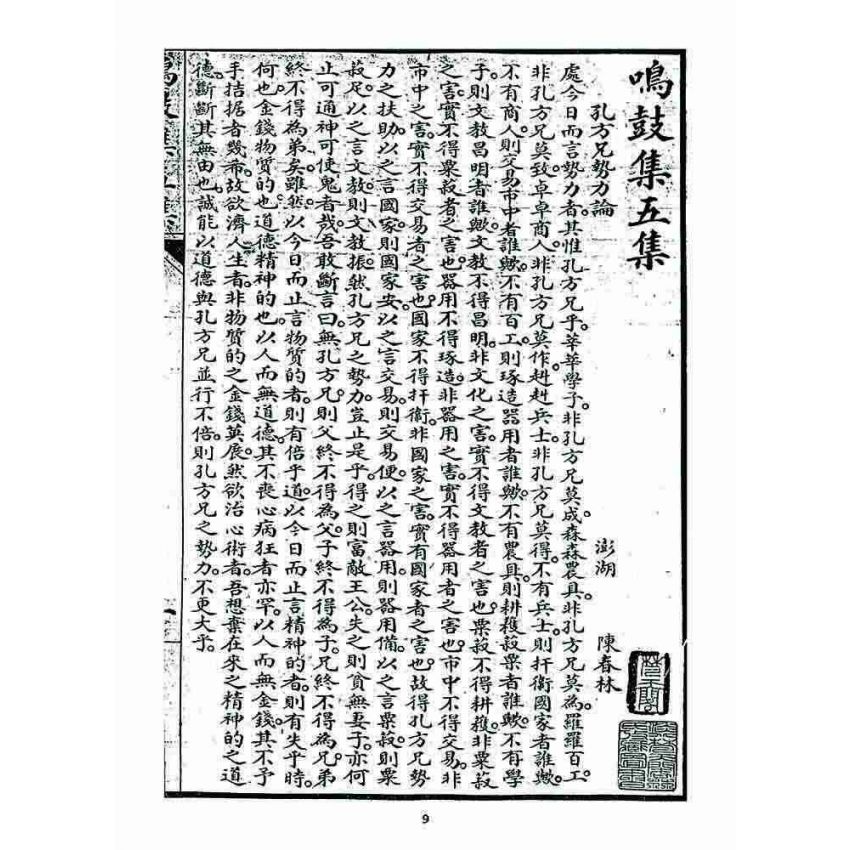 鳴鼓集五集
孔方兄勢力論
澎湖 陳春林
處今日而言勢力者。其惟孔方兄乎。莘莘學子。非孔方兄莫成。森森農具。非孔方兄莫為。羅羅百工。
非孔方兄莫致。卓卓商人。非孔方兄莫作。赳赳兵士。非孔方兄莫得。不有兵士。則扞衛國家者誰歟。
不有商人。則交易市中者誰歟。不有百工。則琢造器用者誰歟。不有農具。則耕穫菽粟者誰歟。不有學
子。則文教昌明者誰歟。文教不得昌明。非文化之害。實不得文教者之害也。粟菽不得耕穫。非粟菽
之害。實不得粟菽者之害也。器用不得琢造。非器用之害。實不得器用者之害也。市中不得交易。非
市中之害。實不得交易者之害也。國家不得扞衛。非國家之害。實有國家者之害也。故得孔方兄勢
力之扶助。以之言國家。則國家安。以之言交易。則交易便。以之言器用。則器用備。以之言粟菽。則粟
菽足。以之言文教。則文教振。然孔方兄之勢力。豈止是乎。得之則富敵王公。失之則貧無妻子。亦何
止可通神可使鬼者哉。吾敢斷言曰。無孔方兄。則父終不得為父。子終不得為子。兄終不得為兄。弟
終不得為弟矣。雖然。以今日而止言物質的者。則有倍乎道。以今日而止言精神的者。則有失乎時。
何也。金錢物質的也。道德精神的也。以人而無道德。其不喪心病狂者亦罕。以人而無金錢。其不予
手拮据者幾希。故欲濟人生者。非物質的之金錢莫展。然欲治心術者。吾想棄在來之精神的之道
德。斷斷其無由也。誠能以道德與孔方兄並行不倍。則孔方兄之勢力。不更大乎。
一
9